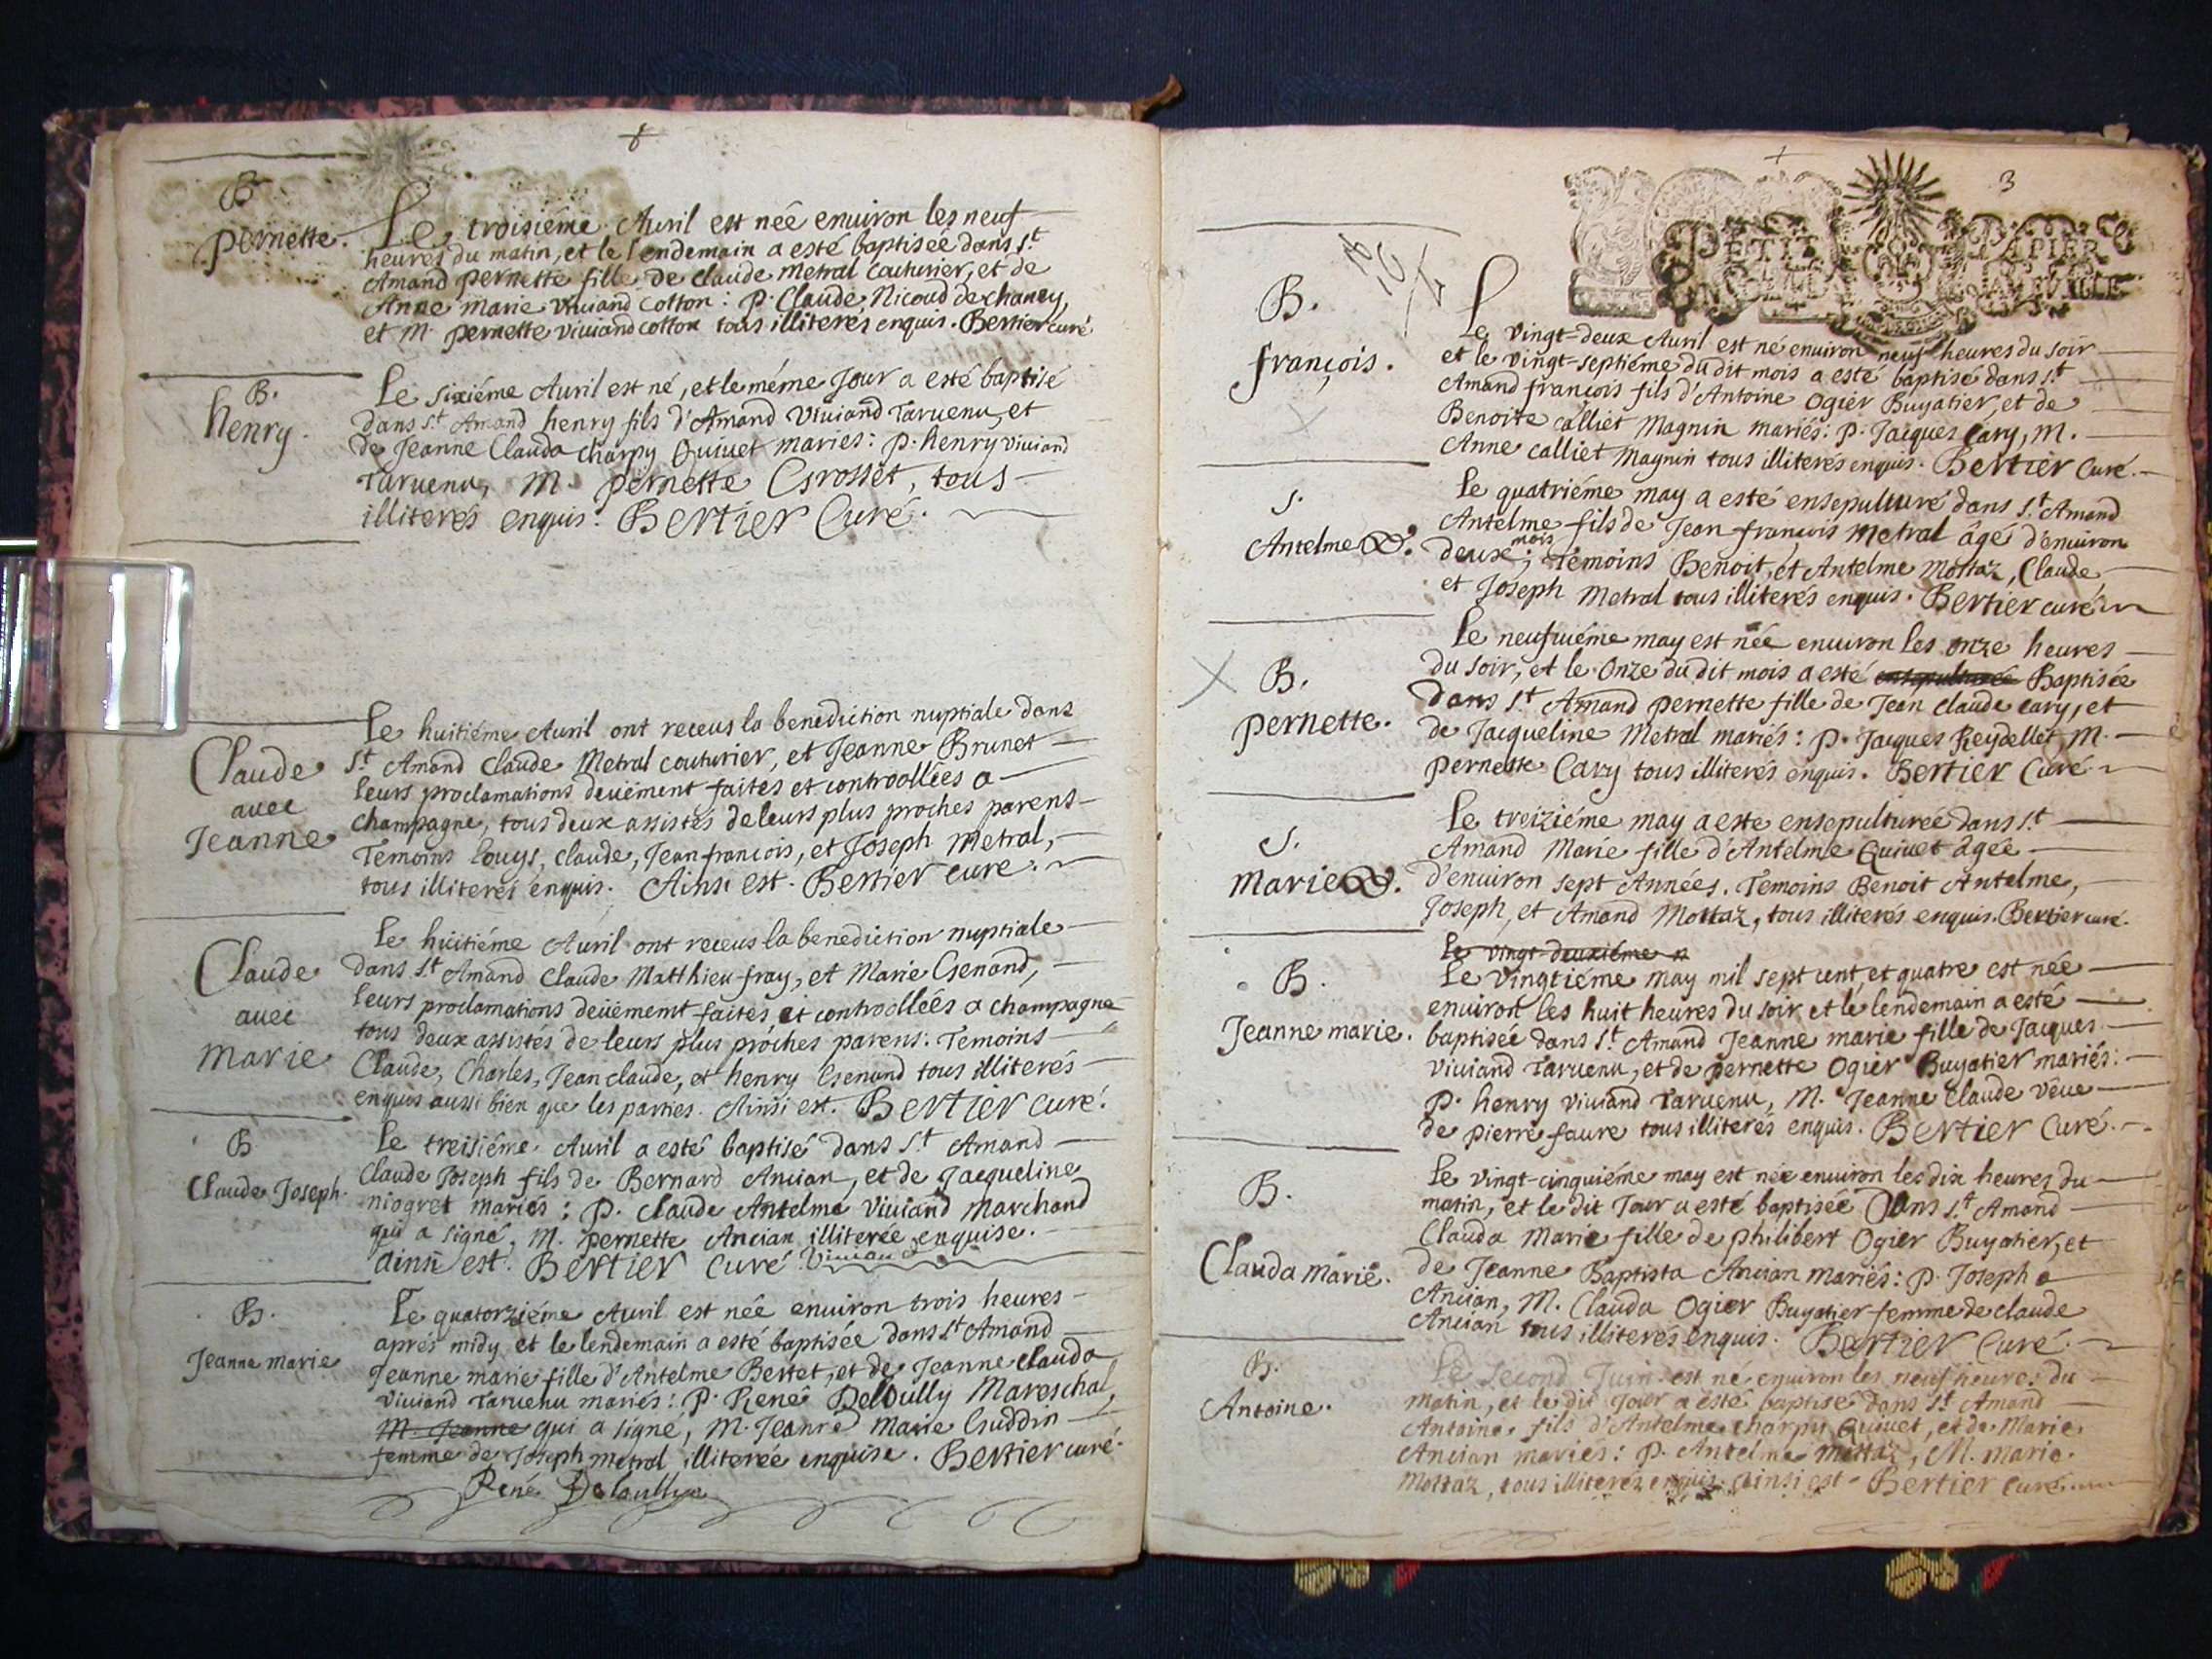 B
pernette.
Le troisiéme Auril est née enuiron les neuf
heures du matin, et le lendemain a esté baptiseé dans S.t
Amand pernette fille de claude metral couturier, et de
Anne marie viuiand cotton : p. Claude Nicoud de chaney,
et M. pernette viuiand cotton tous illiterés enquis. Bertier curé
B.
henry.
Le sixiéme Auril est né, et le méme Jour a esté baptisé
dans S.t Amand henry fils d'Amand Viuiand Taruenu, et
de Jeanne Clauda charpy Quiuet mariés : p. henry viuiand
Taruenu, M. pernette Grosset, tous
illiterés enquis. Bertier Curé.
Claude
auec
Jeanne
Le huitiéme Auril ont receus la benediction nuptiale dans
S.t Amand Claude Metral couturier, et Jeanne Brunet
leurs proclamations deuëment faites et controollées a
champagne, tous deux assistés de leurs plus proches parens
Temoins Louys, claude, Jean francois, et Joseph metral,
tous illiterés enquis. Ainsi est. Bertier curé.
Claude
auec
marie
Le huitiéme Auril ont receus la benediction nuptiale
dans S.t Amand Claude Matthieu fray, et Marie Genand,
leurs proclamations deuëment faites et controollées a champagne
tous deux assistés de leurs plus próches parens. Temoins
Claude, Charles, Jean claude, et henry Genand tous illiterés
enquis aussi bien que les parties. Ainsi est. Bertier curé.
B
Claude Joseph.
Le treisiéme Auril a esté baptisé dans S.t Amand
Claude Joseph fils de Bernard Ancian, et de Jacqueline
niogret mariés : p. claude Antelme Viuiand Marchand
qui a signé, M. pernette Ancian illiterée enquise.
ainsi est. Bertier Curé Viuiand
B.
Jeanne marie
Le quatorziéme Auril est née enuiron trois heures
aprés midy, et le lendemain a esté baptisée dans S.t Amand
Jeanne marie fille d'Antelme Bertet, et de Jeanne clauda
viuiand taruenu mariés : P. René Deloully Mareschal,
M. Jeanne qui a signé, M. Jeanne Marie Guddin
femme de Joseph metral illiterée enquise. Bertier curé.
René Deloullye
3
PETIT PAPIER
B.
françois.
Le vingt-deux Auril est né enuiron neuf heures du soir
et le vingt-septiéme du dit mois a esté baptisé dans S.t
Amand françois fils d'Antoine Ogier Buyatier, et de
Benoite calliet Magnin mariés : p. Jacques Cary, M.
Anne calliet Magnin tous illiterés enquis. Bertier Curé.
S.
Antelme
Le quatriéme may a esté ensepulturé dans S.t Amand
Antelme fils de Jean françois Metral âgé d'enuiron
mois
deux ; Temoins Benoit, et Antelme Mottaz, Claude
et Joseph Metral tous illiterés enquis. Bertier curé
B.
pernette.
Le neufuiéme may est née enuiron les onze heures
du soir, et le Onze du dit mois a esté ensepulturée Baptisée
dans S.t Amand pernette fille de Jean claude cary, et
de Jacqueline Metral mariés : p. Jacques Reydellet, M.
pernette Cary tous illiterés enquis. Bertier Curé
S.
marie
Le treiziéme may a esté ensepulturée dans S.t
Amand Marie fille d'Antelme Quiuet âgée
d'enuiron sept Années. Temoins Benoit Antelme,
Joseph, et Amand Mottaz, tous illiterés enquis. Bertier curé.
Le vingt deuxiéme
B.
Jeanne marie.
Le Vingtiéme may mil sept cent et quatre est née
enuiron les huit heures du soir et le lendemain a esté
baptisée dans S.t Amand Jeanne marie fille de Jacques
viuiand Taruenu, et de pernette Ogier Buyatier mariés :
p. henry viuiand Taruenu, M. Jeanne Claude veue
de pierre faure tous illiterés enquis. Bertier Curé.
B.
Clauda marie.
Le vingt-cinquiéme may est née enuiron les dix heures du
matin, et le dit Jour a esté baptisée Dans S.t Amand
Clauda Marie fille de philibert Ogier Buyatier, et
de Jeanne Baptista Ancian mariés : p. Joseph
Ancian, M. Clauda Ogier Buyatier femme de claude
Ancian tous illiterés enquis. Bertier Curé.
B.
Antoine.
Le second Juin est né enuiron les neuf heures du
matin, et le dit Jour a esté baptisé dans S.t Amand
Antoine fils d'Antelme charpy Quiuet, et de Marie
Ancian mariés : p. Antelme Mottaz, M. marie
Mottaz, tous illiterés enquis. ainsi est Bertier curé.